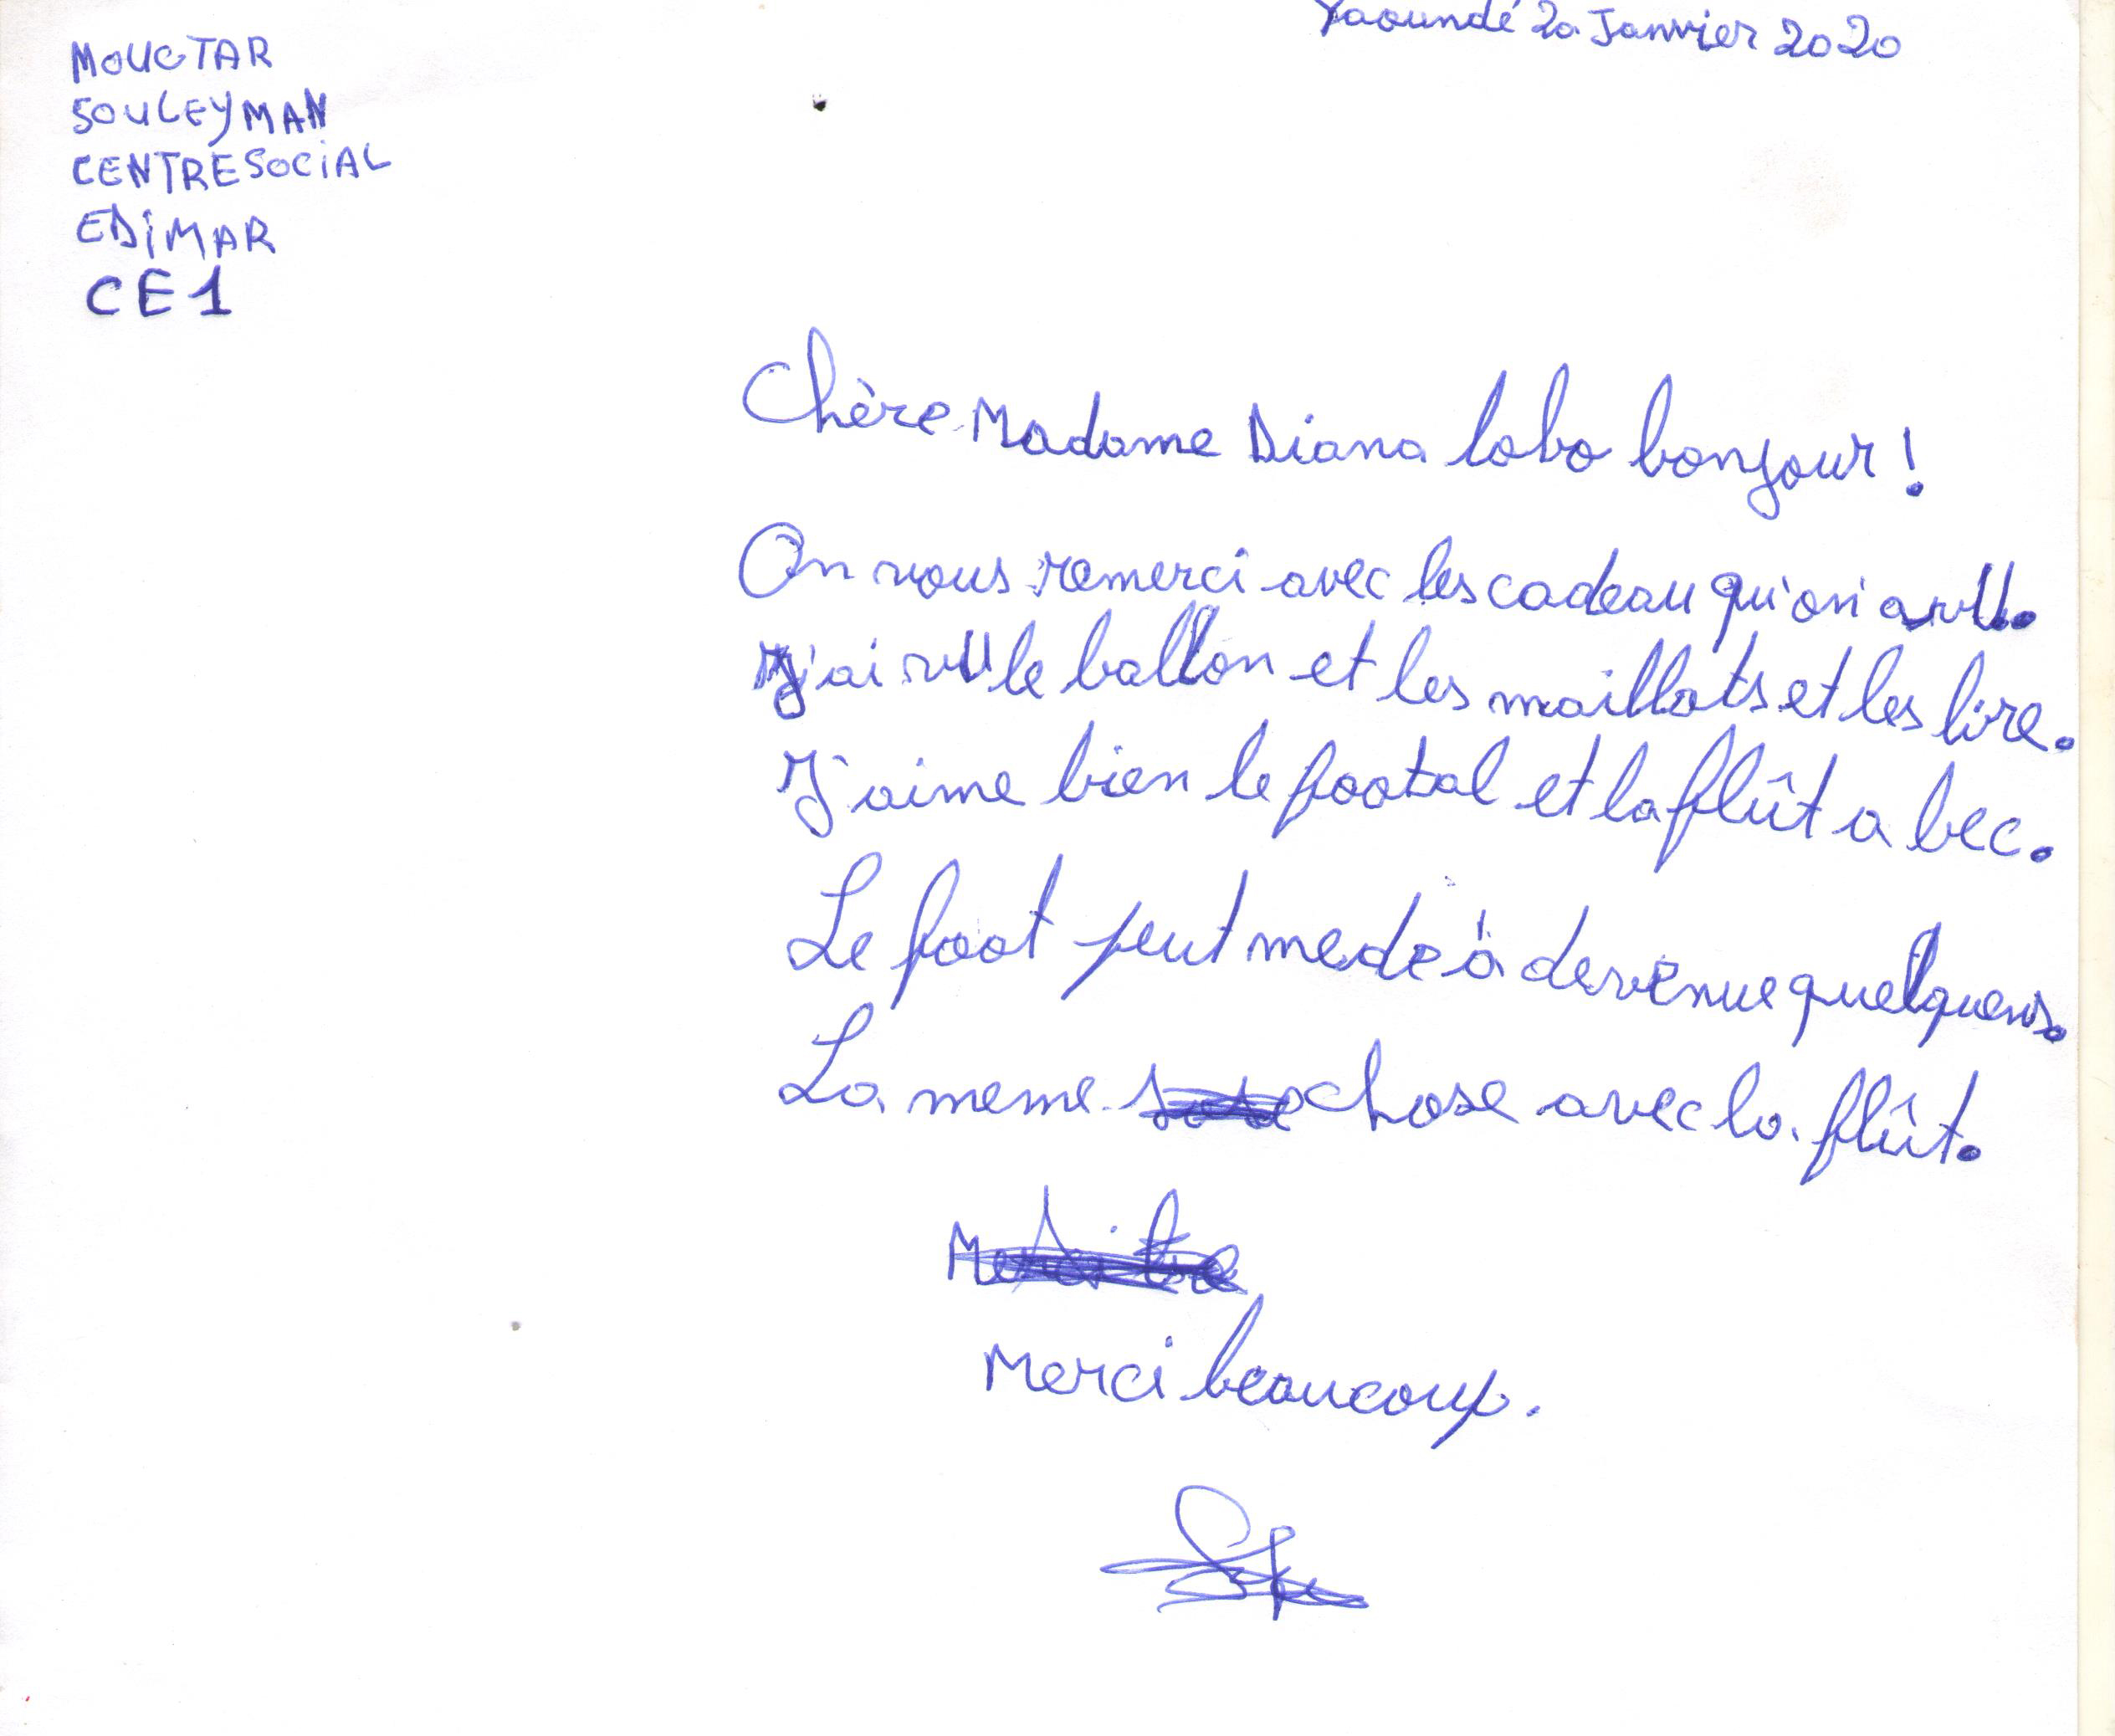 Yaoundé 20 Janvier 2020
MOUCTAR
SOULEYMAN
CENTRE SOCIAL
EDIMAR
CE1
Chère Madame Diana lobo bonjour !
On vous remerci avec les cadeau qu'on a vu.
J'ai vu le ballon et les maillots et les livre.
J'aime bien le footbal et la flût a bec.
Le foot peut mede à devenue quelquens.
La meme chose avec la flût.
Merci beaucoup.